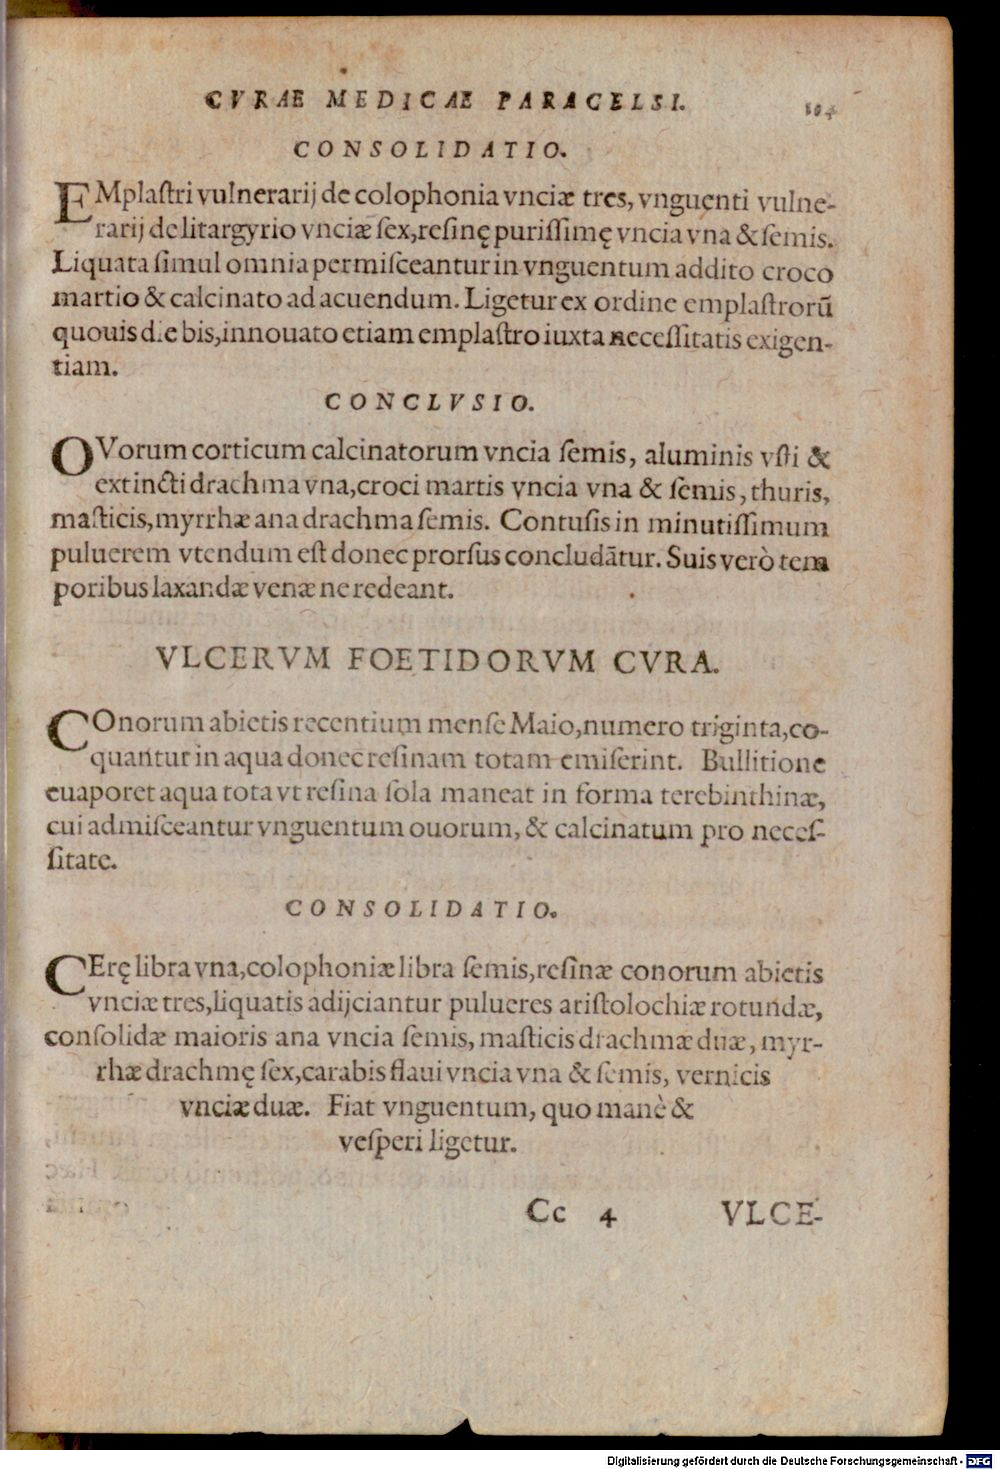 CVRAE MEDICAE PARACELSI. 104
CONSOLIDATIO.
EMplaſtri vulnerarij de colophonia vnciæ tres, vnguenti vulne-
rarij de litargyrio vnciæ ſex, reſinę puriſſimę vncia vna & ſemis.
Liquata ſimul omnia permiſceantur in vnguentum addito croco
martio & calcinato ad acuendum. Ligetur ex ordine emplaſtrorū
quouis die bis, innouato etiam emplaſtro iuxta neceſſitatis exigen-
tiam.
CONCLVSIO.
OVorum corticum calcinatorum vncia ſemis, aluminis vſti &
extincti drachma vna, croci martis vncia vna & ſemis, thuris,
maſticis, myrrhæ ana drachma ſemis. Contuſis in minutiſſimum
puluerem vtendum eſt donec prorſus concludātur. Suis verò tem
poribus laxandæ venæ ne redeant.
VLCERVM FOETIDORVM CVRA.
COnorum abietis recentium menſe Maio, numero triginta, co-
quantur in aqua donec reſinam totam emiſerint. Bullitione
euaporet aqua tota vt reſina ſola maneat in forma terebinthinæ,
cui admiſceantur vnguentum ouorum, & calcinatum pro neceſ-
ſitate.
CONSOLIDATIO.
CErę libra vna, colophoniæ libra ſemis, reſinæ conorum abietis
vnciæ tres, liquatis adijciantur pulueres ariſtolochiæ rotundæ,
conſolidæ maioris ana vncia ſemis, maſticis drachmæ duæ, myr-
rhæ drachmę ſex, carabis flaui vncia vna & ſemis, vernicis
vnciæ duæ. Fiat vnguentum, quo manè &
veſperi ligetur.
Cc 4 VLCE-
Digitalisierung gefördert durch die Deutsche Forschungsgemeinschaft - DFG